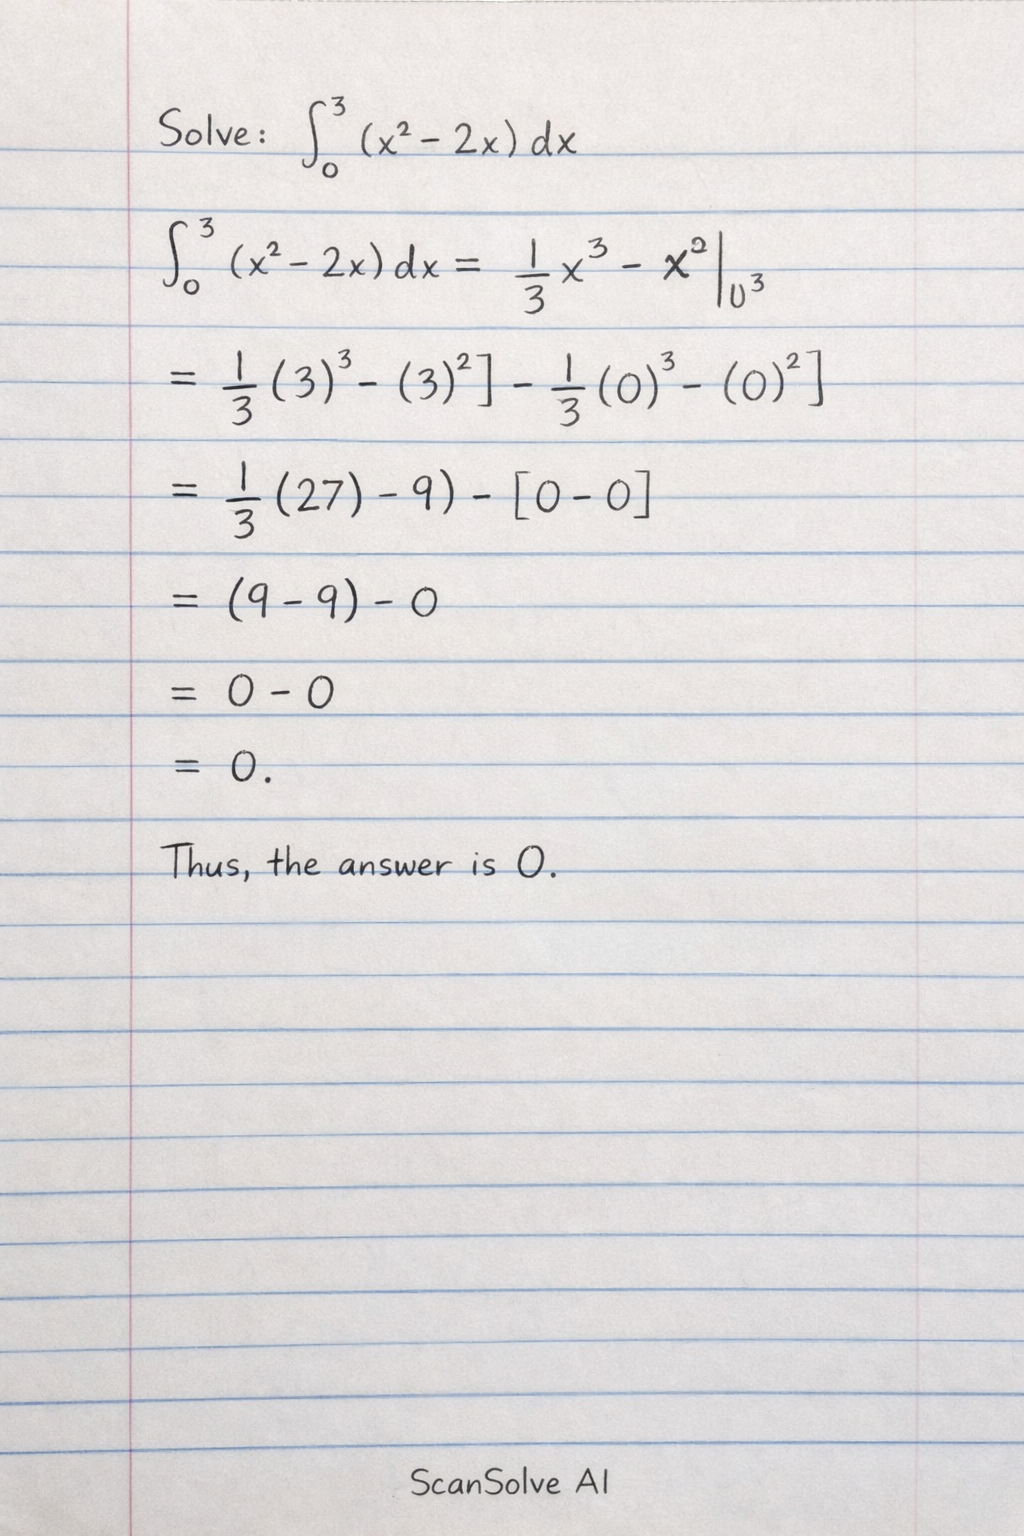 Solve: ∫₀³ (x² − 2x) dx
∫₀³ (x² − 2x) dx = 1/3 x³ − x² |₀³
= 1/3 (3)³ − (3)²] − 1/3 (0)³ − (0)²]
= 1/3 (27) − 9) − [0 − 0]
= (9 − 9) − 0
= 0 − 0
= 0.
Thus, the answer is 0.
ScanSolve AI